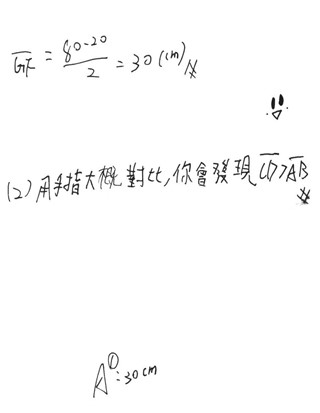 GF = 80-20 / 2 = 30 (cm)
(2) 用手指大概對比,你會發現 CD > AB
A①:30cm